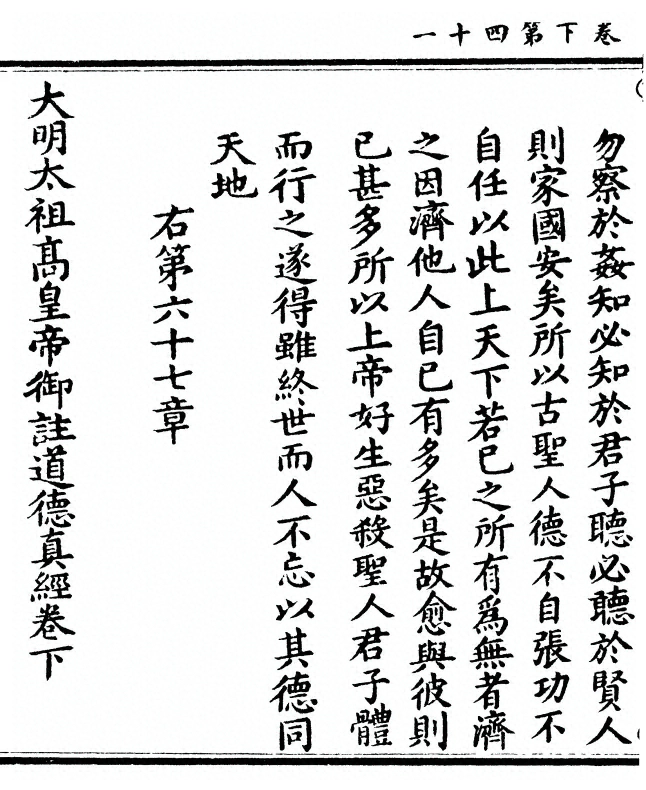 卷下第四十一
勿察於姦知必知於君子聽必聽於賢人
則家國安矣所以古聖人德不自張功不
自任以此上天下若已之所有爲無者濟
之因濟他人自已有多矣是故愈與彼則
已甚多所以上帝好生惡殺聖人君子體
而行之遂得雖終世而人不忘以其德同
天地
右第六十七章
大明太祖高皇帝御註道德真經卷下